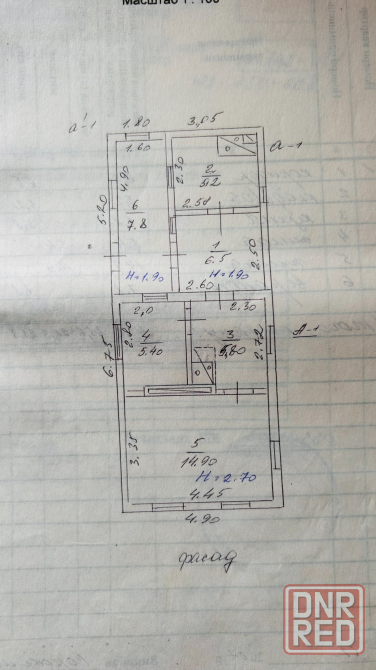 Масштаб 1 : 100
1.80
3,05
а'-1
а-1
1.60
4.90
2.30
2
5.2
5.20
6
7.8
2.51
1
6.5
2.50
H=1.90
H=1.90
2.60
2,0
2.30
2.70
4
5.40
3
2.72
А-1
6.75
3.35
5
14.90
H=2.70
4.45
4.90
фасад
DNR
RED